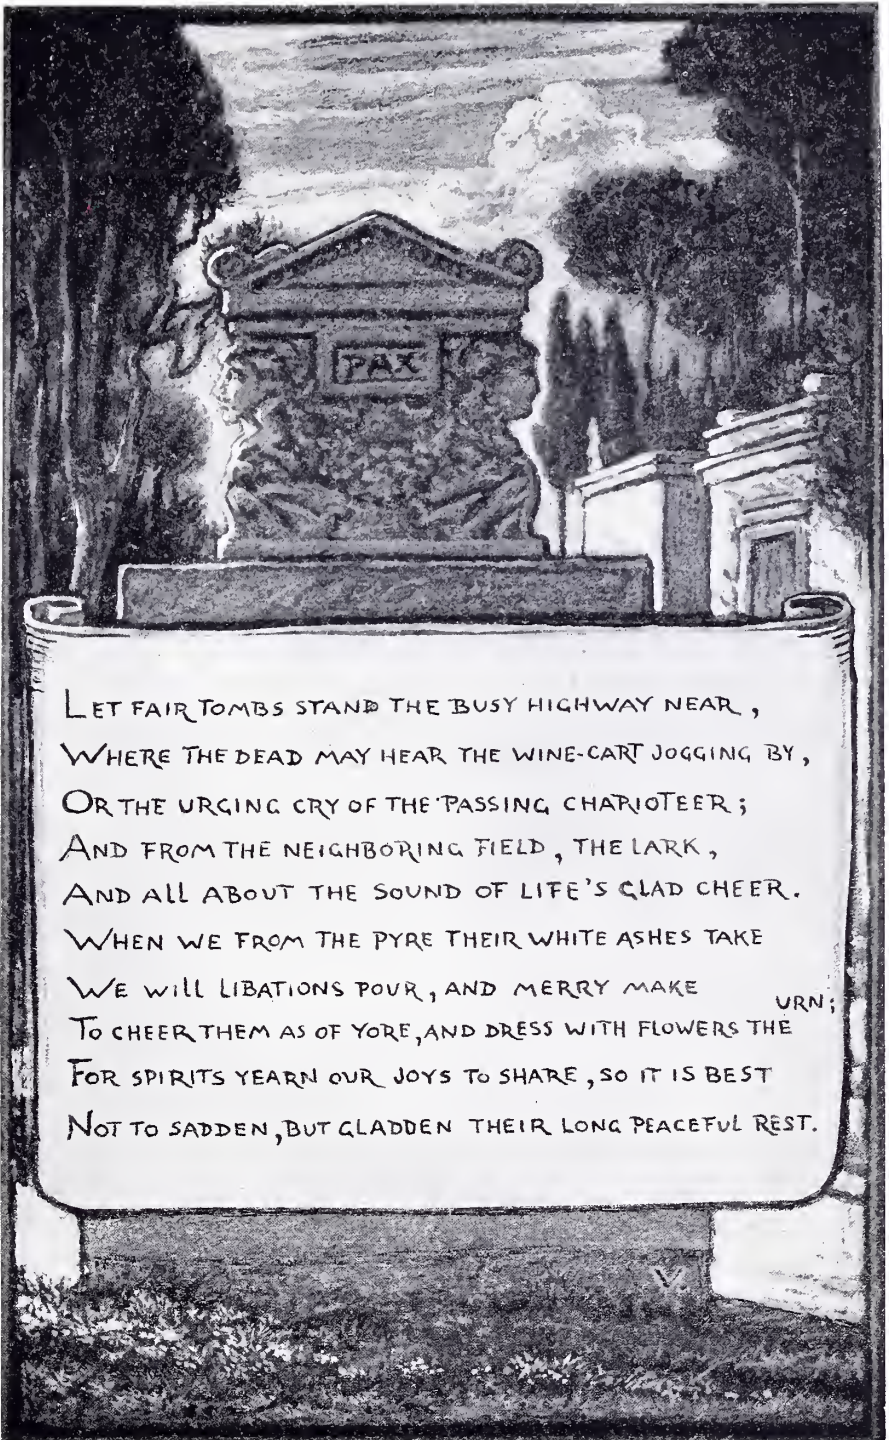 PAX
LET FAIR TOMBS STAND THE BUSY HIGHWAY NEAR,
WHERE THE DEAD MAY HEAR THE WINE-CART JOGGING BY,
OR THE URGING CRY OF THE PASSING CHARIOTEER;
AND FROM THE NEIGHBORING FIELD, THE LARK,
AND ALL ABOUT THE SOUND OF LIFE'S GLAD CHEER.
WHEN WE FROM THE PYRE THEIR WHITE ASHES TAKE
WE WILL LIBATIONS POUR, AND MERRY MAKE
TO CHEER THEM AS OF YORE, AND DRESS WITH FLOWERS THE
URN;
FOR SPIRITS YEARN OUR JOYS TO SHARE, SO IT IS BEST
NOT TO SADDEN, BUT GLADDEN THEIR LONG PEACEFUL REST.
V